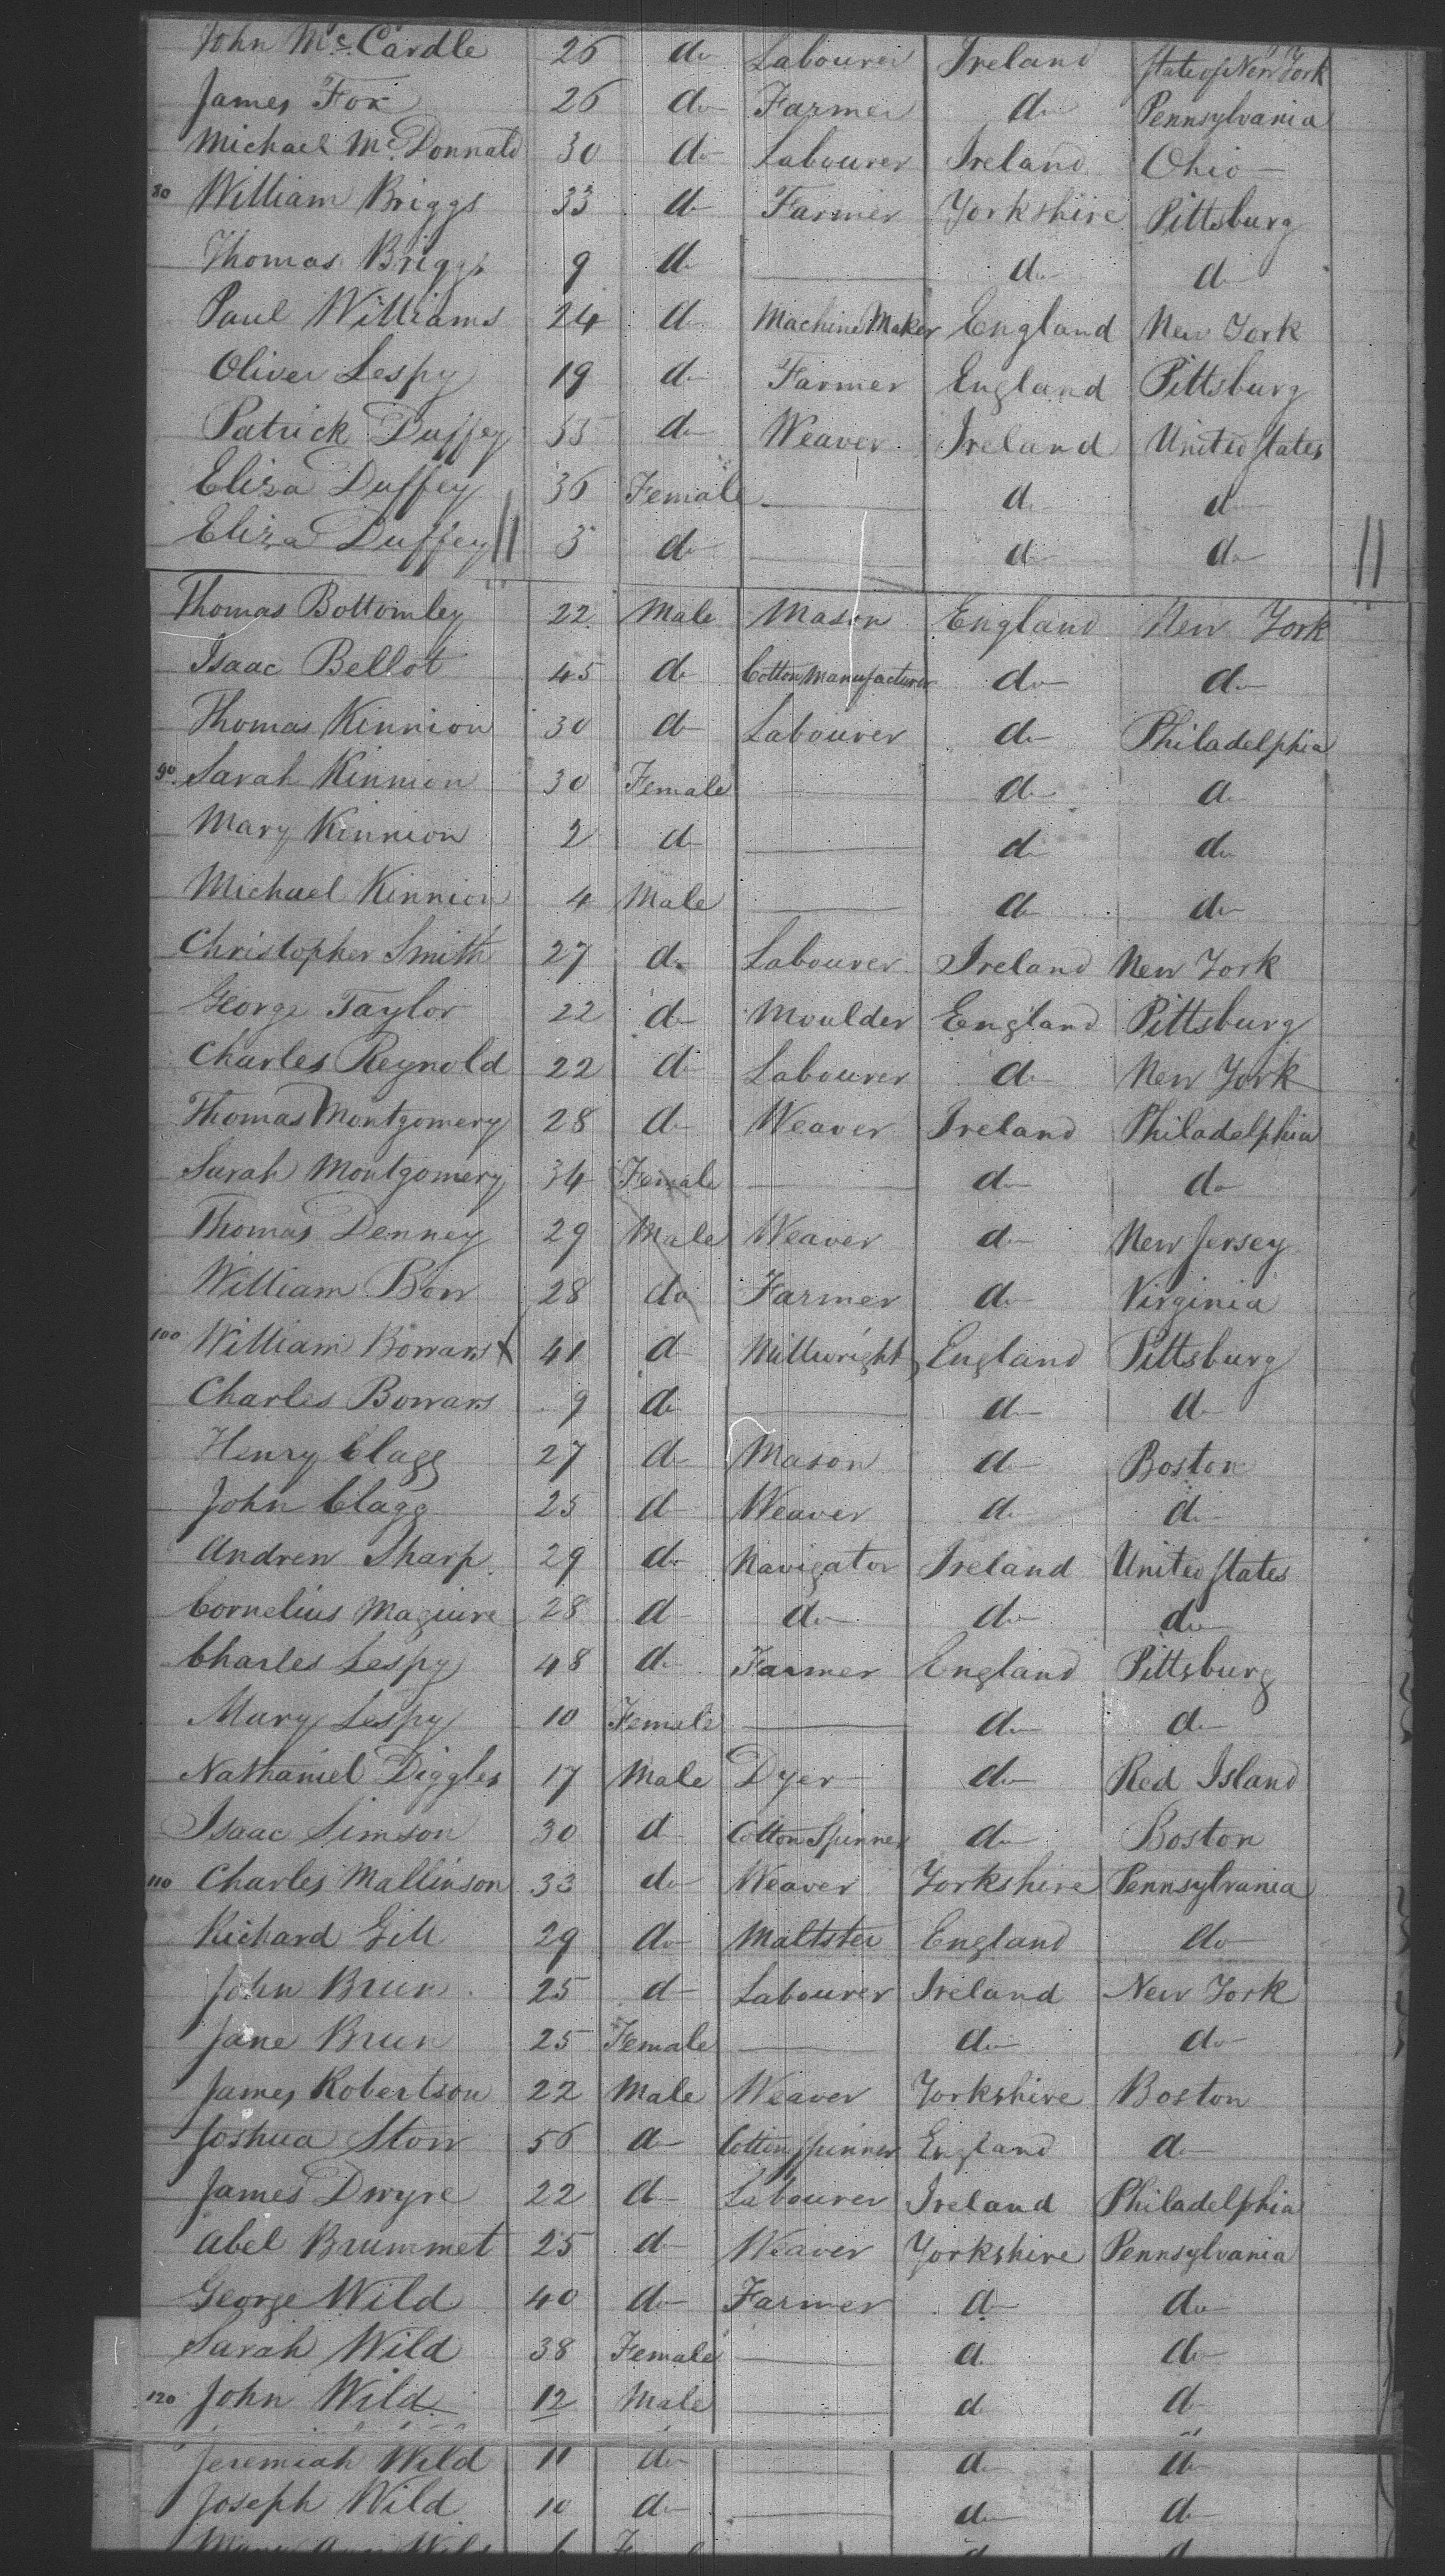 John Mc. Cardle 26 do Labourer Ireland State of New York
James Fox 26 do Farmer do Pennsylvania
Michael Mc. Donnald 30 do Labourer Ireland Ohio
80 William Briggs 33 do Farmer Yorkshire Pittsburg
Thomas Briggs 9 do do do
Paul Williams 24 do Machine Maker England New York
Oliver Lespy 19 do Farmer England Pittsburg
Patrick Duffey 35 do Weaver Ireland United States
Eliza Duffey 36 Female do do
Eliza Duffey 3 do do do
Thomas Bottomley 22 Male Mason England New York
Isaac Bellot 45 do Cotton Manufacturer do do
Thomas Kinnion 30 do Labourer do Philadelphia
90 Sarah Kinnion 30 Female do do
Mary Kinnion 2 do do do
Michael Kinnion 4 Male do do
Christopher Smith 27 do Labourer Ireland New York
George Taylor 22 do Moulder England Pittsburg
Charles Reynold 22 do Labourer do New York
Thomas Montgomery 28 do Weaver Ireland Philadelphia
Sarah Montgomery 34 Female do do
Thomas Denney 29 Male Weaver do New Jersey
William Bow 28 do Farmer do Virginia
100 William Bowars 41 do Millwright England Pittsburg
Charles Bowars 9 do do do
Henry Clagg 27 do Mason do Boston
John Clagg 25 do Weaver do do
Andrew Sharp 29 do Navigator Ireland United States
Cornelius Maguire 28 do do do do
Charles Lespy 48 do Farmer England Pittsburg
Mary Lespy 10 Female do do
Nathaniel Diggles 17 Male Dyer do Red Island
Isaac Simson 30 do Cotton Spinner do Boston
110 Charles Mallinson 33 do Weaver Yorkshire Pennsylvania
Richard Gill 29 do Maltster England do
John Brun 25 do Labourer Ireland New York
Jane Brun 25 Female do do
James Robertson 22 Male Weaver Yorkshire Boston
Joshua Stow 56 do Cotton Spinner England do
James Dwyre 22 do Labourer Ireland Philadelphia
Abel Brummet 25 do Weaver Yorkshire Pennsylvania
George Wild 40 do Farmer do do
Sarah Wild 38 Female do do
120 John Wild 12 Male do do
Jeremiah Wild 11 do do do
Joseph Wild 10 do do do